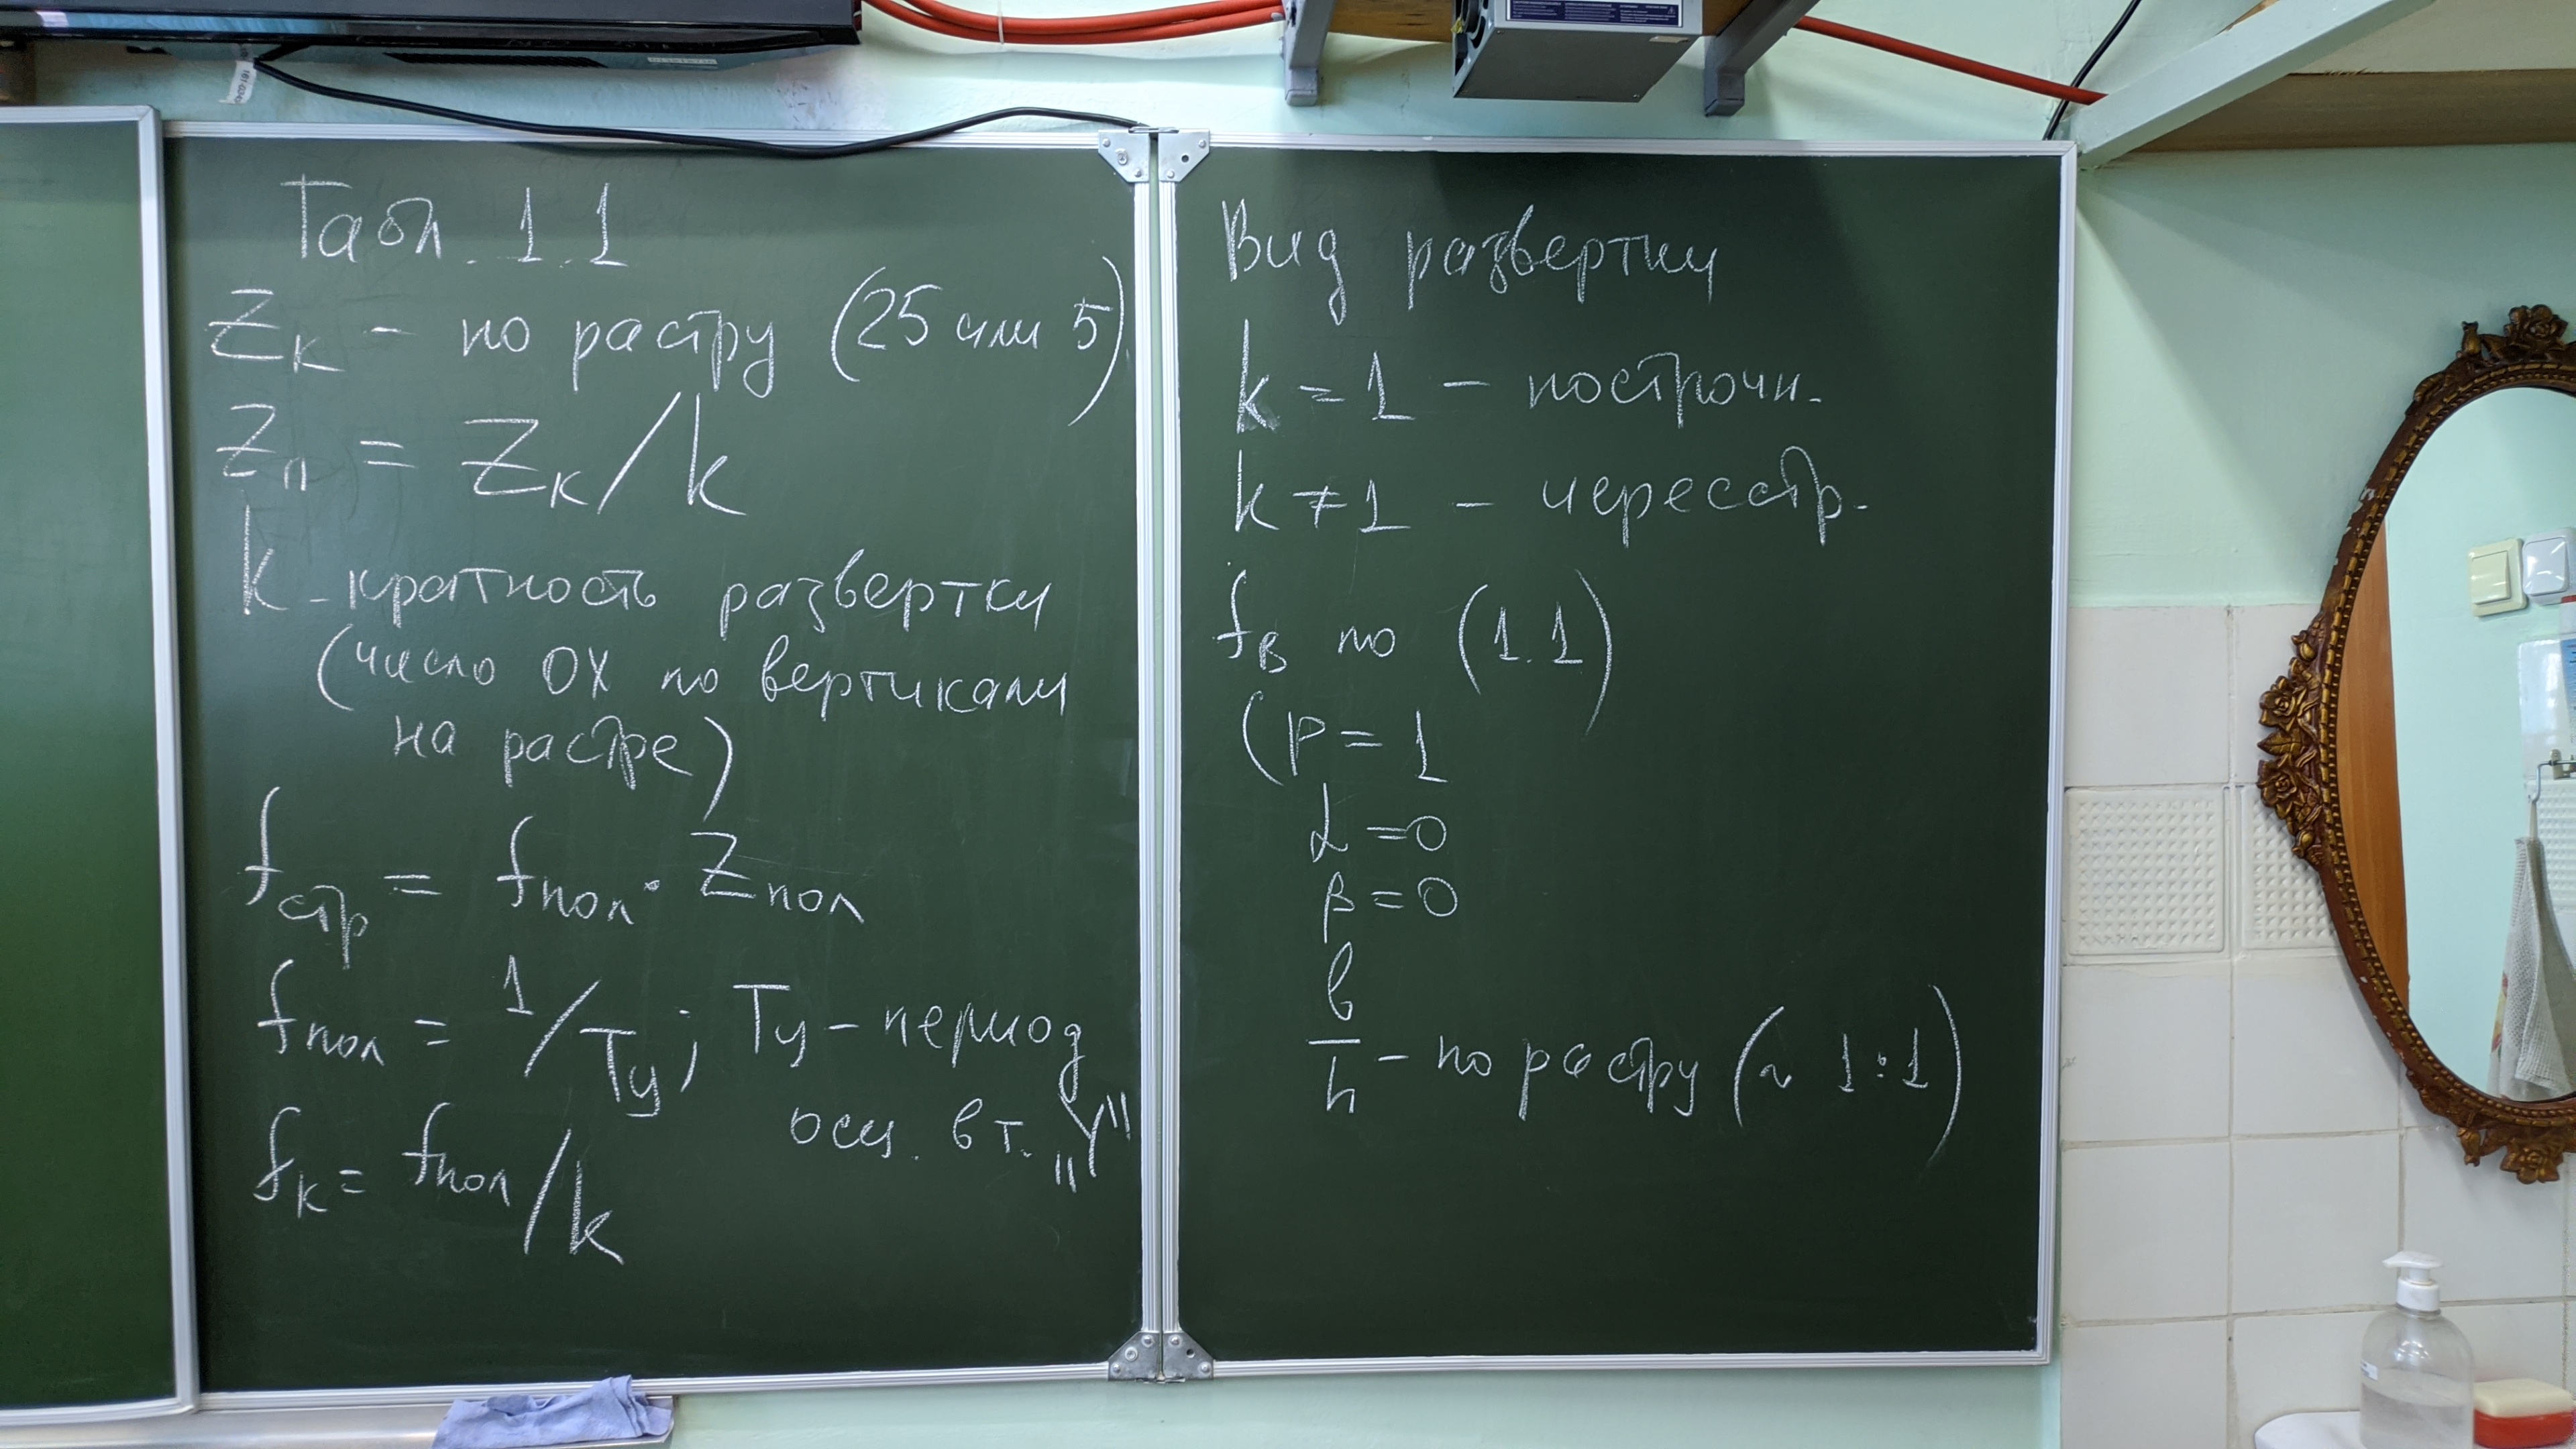 Табл. 1.1
Zк - по растру (25 или 5)
Zп = Zк/k
k - кратность развертки
(число ОХ по вертикали
на растре)
fстр = fпол · Zпол
fпол = 1/Tу; Tу - период
осц. в т. „Y"
fк = fпол/k
Вид развертки
k = 1 - построчн.
k ≠ 1 - черессстр.
fв по (1.1)
(p = 1
α = 0
β = 0
b
h - по растру (~ 1:1)